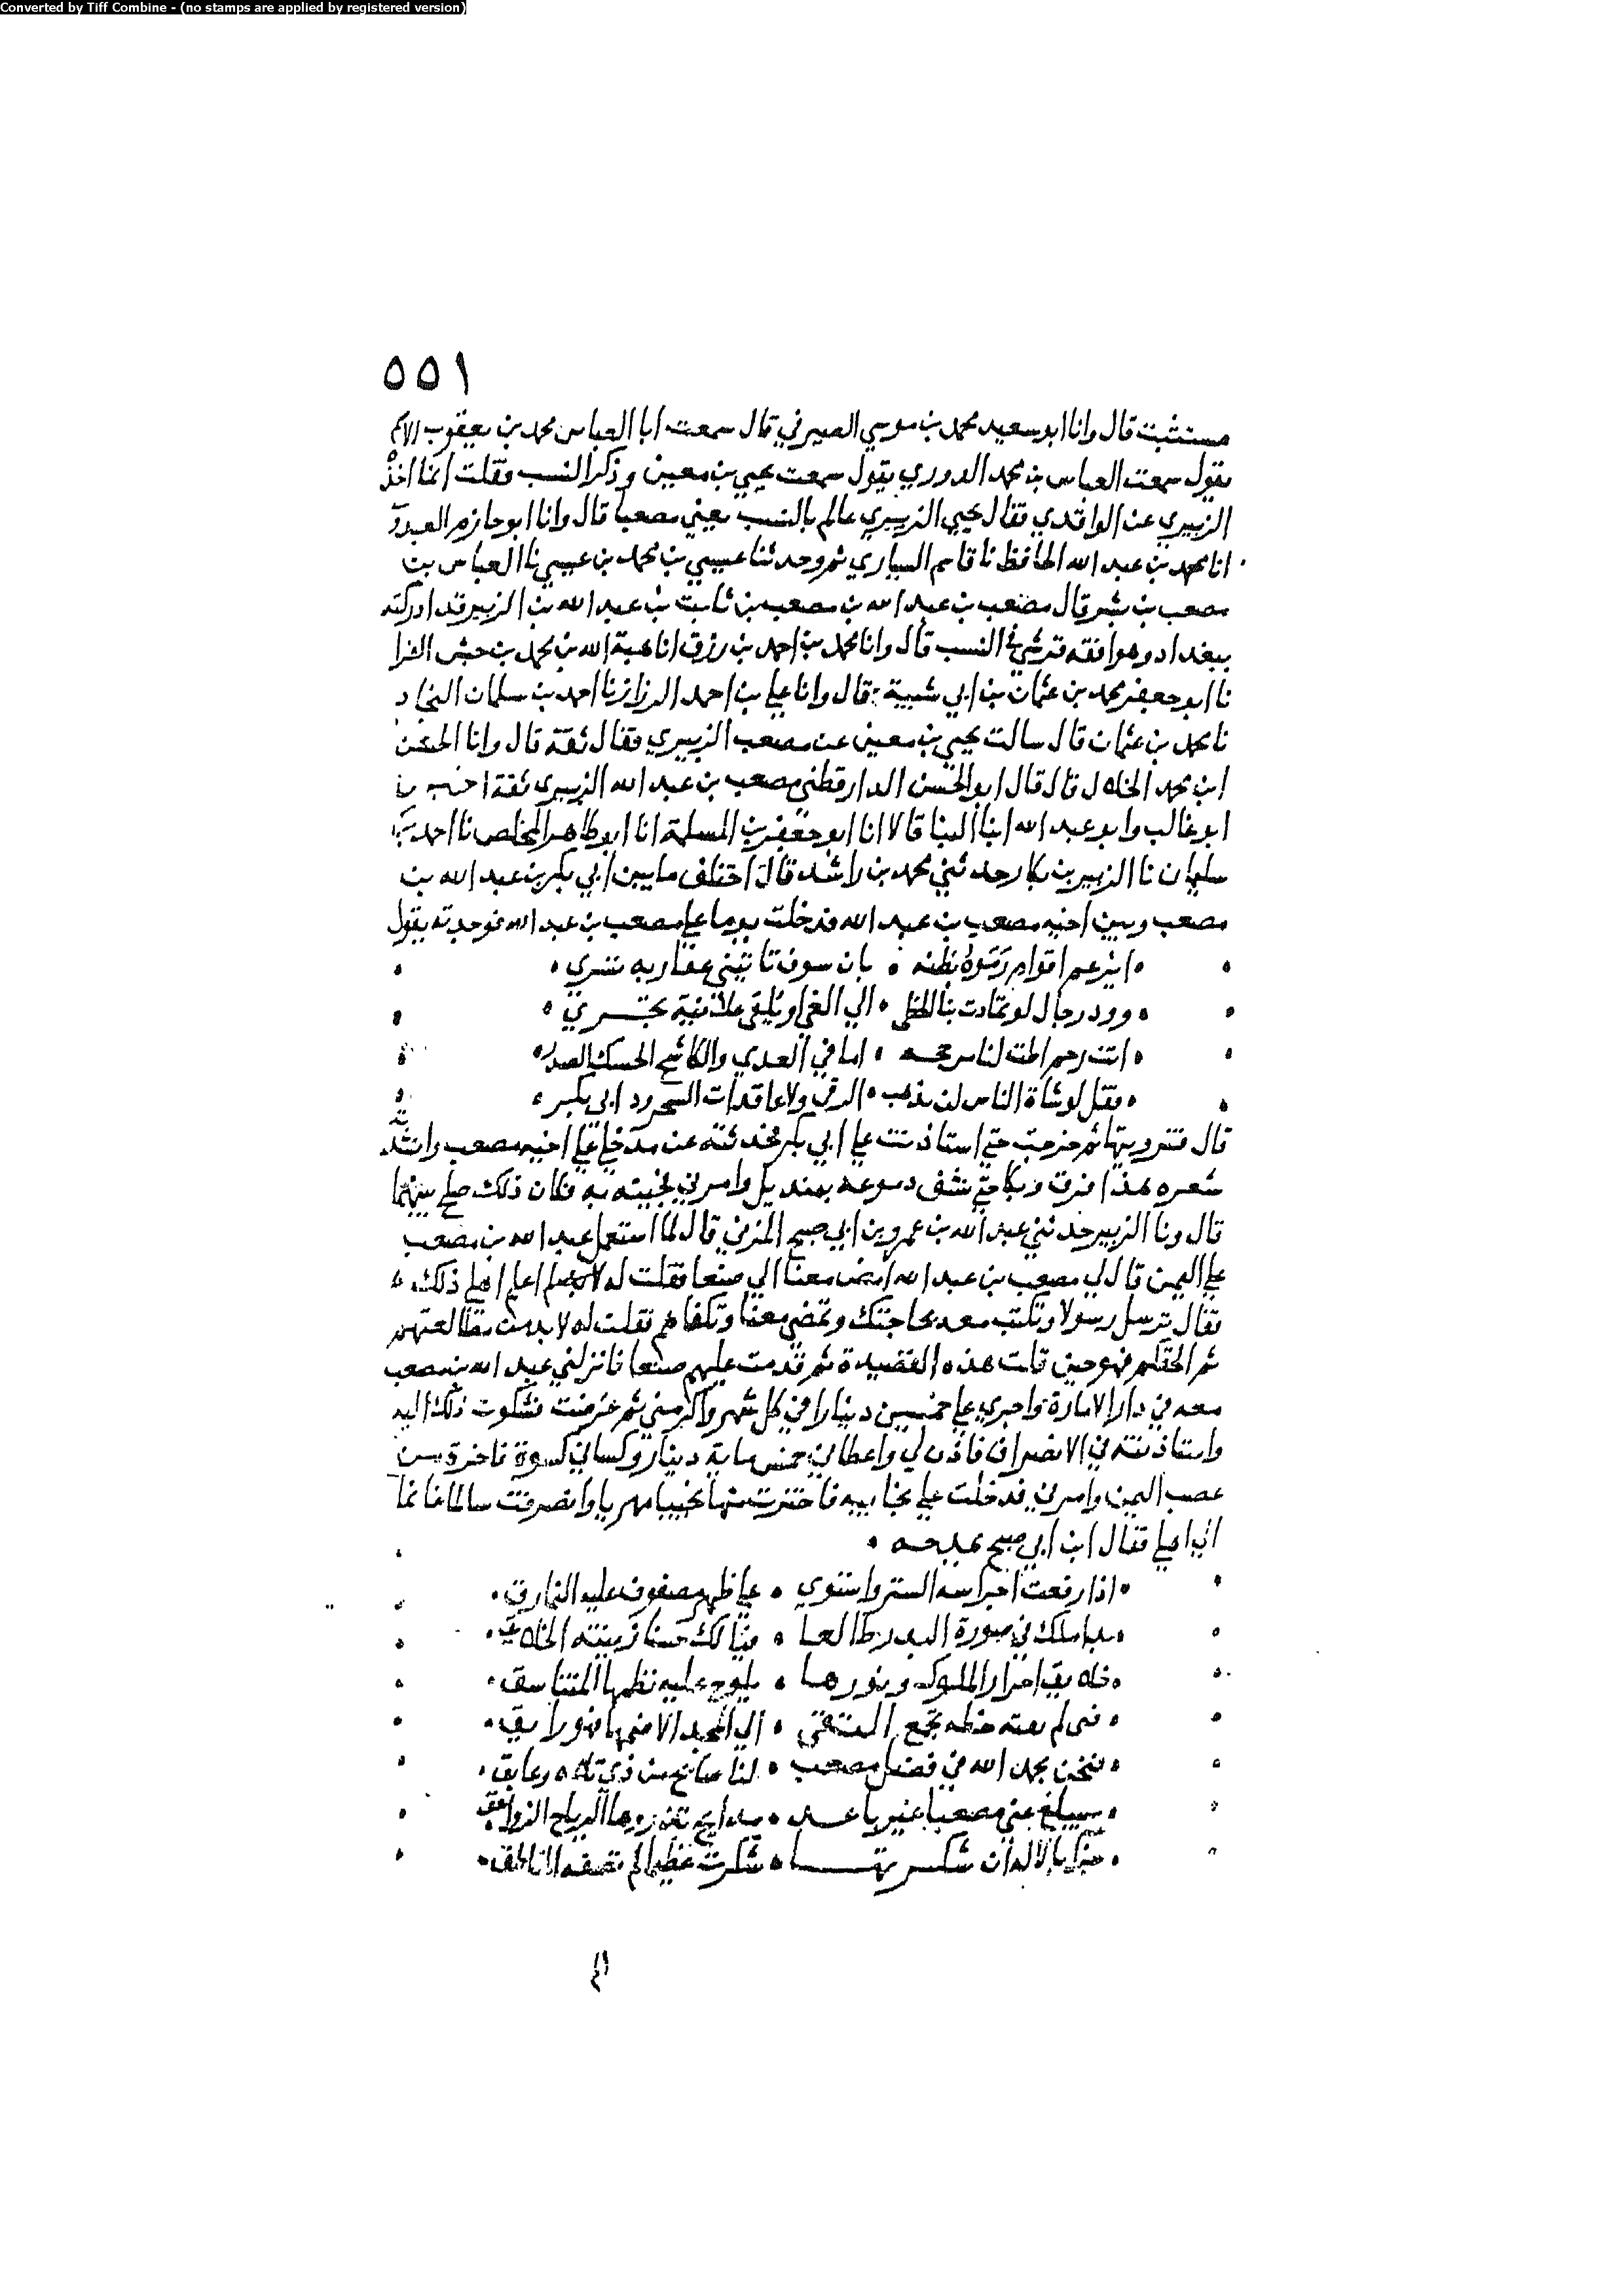 Converted by Tiff Combine - (no stamps are applied by registered version)
٥٥١
مستثبت قال وانا ابو سعيد محمد بن موسي الصيرفي قال سمعت ابا العباس محمد بن يعقوب الاصم
يقول سمعت العباس بن محمد الدوري يقول سمعت يحيي بن معين وذكر النسب فقلت انما اخذ
الزبيري عن الواقدي فقال يحيي الزبيري عالم بالنسب يعني مصعبا قال وانا ابو حازم العبدوي
انا محمد بن عبد الله الحافظ نا قاسم السياري ثم وحدثنا عيسي بن محمد بن عيسي نا العباس بن
مصعب بن بشر قال مصعب بن عبد الله بن مصعب بن ثابت بن عبد الله بن الزبير قد ادركته
ببغداد وهو افقه قرشي في النسب قال وانا محمد بن احمد بن رزق انا هبة الله بن محمد بن حبش الفرا
نا ابو جعفر محمد بن عثمان بن ابي شيبة قال وانا علي بن احمد الرزاز نا احمد بن سلمان النجاد
نا محمد بن عثمان قال سالت يحيي بن معين عن مصعب الزبيري فقال ثقة قال وانا الحسن
ابن محمد الخلال قال قال ابو الحسن الدارقطني مصعب بن عبد الله الزبيري ثقة اخبرنا
ابو غالب وابو عبد الله ابنا البنا قالا انا ابو جعفر بن المسلمة انا ابو طاهر المخلص نا احمد بن
سليمان نا الزبير بن بكار حدثني محمد بن راشد قال اختلف ما بين ابي بكر بن عبد الله بن
مصعب وبين اخيه مصعب بن عبد الله فدخلت يوما علي مصعب بن عبد الله فوجدته يقول
ايزعم اقوام بظنه بان سوف تاتيني عقاربه تسري
وود رجال لو تمادت بنا الخطي الي الغي او يلقي علانية تجري
اتت رحم اطت لنا اما في العدي والكاشح الحسك الصدر
فقل لوشاة الناس لن يذهب الرقي ولا عاقدات السحر ود ابي بكر
قال فترويتها ثم خرجت حتي استاذنت علي ابي بكر فحدثته عن مدخلي علي اخيه مصعب وانشدته
شعره هذا فرق وبكا حتي نشف دموعه بمنديل وامرني فجيته به فكان ذلك صلح بينهما
قال ونا الزبير حدثني عبد الله بن عمرو بن ابي صبح المزني قال لما استعمل عبد الله بن مصعب
علي اليمن قال لي مصعب بن عبد الله امض معنا الي صنعا فقلت له اهلي ذلك
فقال ترسل رسولا وتكتب معه بحاجتك وتمضي معنا وتكفاهم فقلت له لا بد من مطالعتهم
ثم الحقكم فهو حين قلت هذه القصيدة ثم قدمت عليهم صنعا فانزلني عبد الله بن مصعب
معه في دار الامارة واجري علي خمسين دينارا في كل شهر واكرمني ثم غرضت فشكوت ذلك اليه
واستاذنته في الانصراف فاذن لي واعطاني خمس ماية دينار وكساني كسوة فاخرة من
عصب اليمن وامرني فدخلت علي نجايبه فاخترت منها نجيبا مهريا وانصرفت سالما غانما
الي اهلي فقال ابن ابي صبح يمدحه
اذا رفعت احراسه الستر واستوي علي ظهر مصفوف عليه النمارق
بدا ملك في صورة البدر طالعا فيا لك حسنا زينته الخلايق
خلايق احرار الملوك ونورها يلوح عليه نظمها المتناسق
الي المجد
فنحن بحمد الله في فضل مصعب لنا صابح من ذي تلاد وغابق
سيبلغ عني مصعبا غير باعد تذروها الرياح
شكرت عظيما لم تصفه
الي